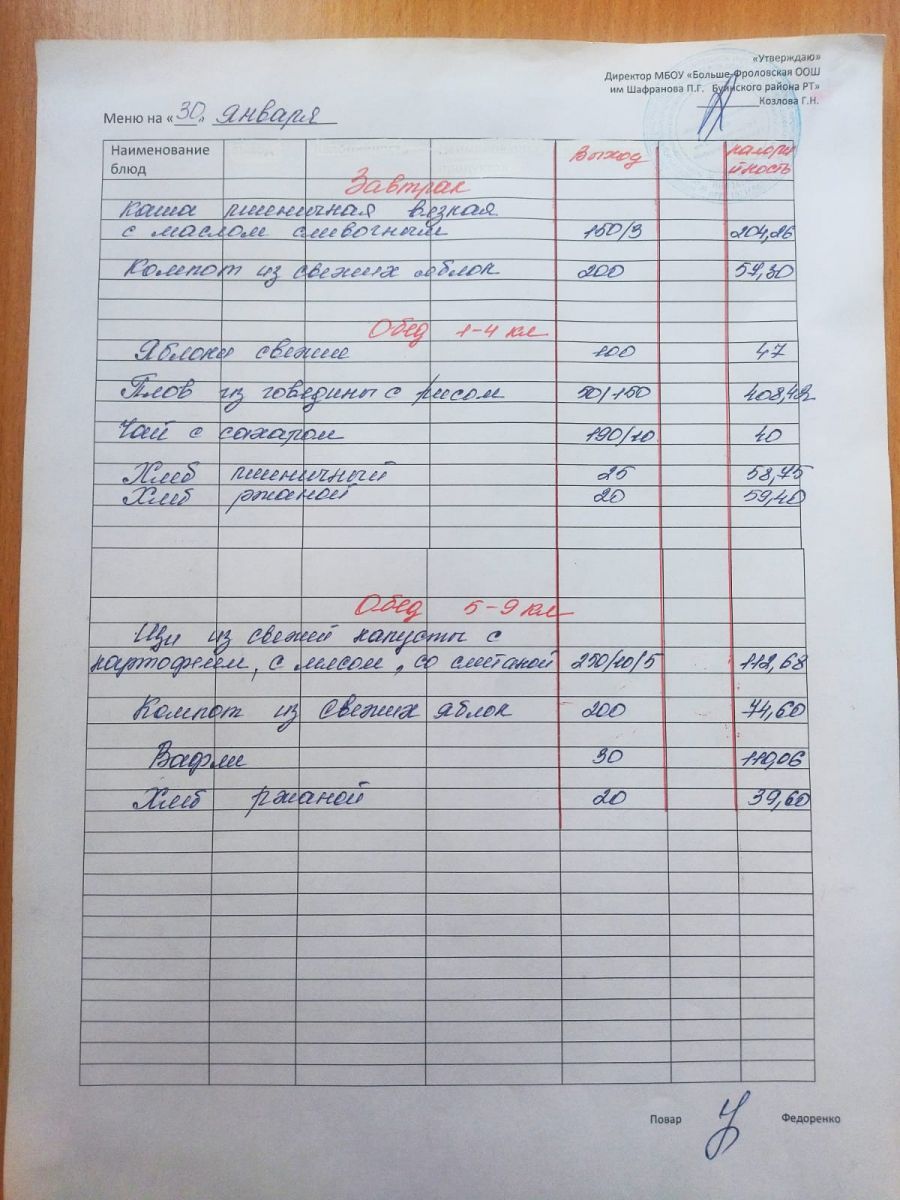 «Утверждаю»
Директор МБОУ «Больше-Фроловская ООШ
им Шафранова П.Г. Буинского района РТ»
Козлова Г.Н.
Меню на «30» января
Наименование блюд Выход калорийность
Завтрак
Каша пшеничная вязкая
с маслом сливочным 150/3 204,26
Компот из свежих яблок 200 57,30
Обед 1-4 кл
Яблоки свежие 100 47
Плов из говедины с рисом 50/150 408,42
Чай с сахаром 190/10 40
Хлеб пшеничный 25 58,75
Хлеб ржаной 20 59,40
Обед 5-9 кл
Щи из свежей капусты с
картофелем, с мясом, со сметаной 250/10/5 112,68
Компот из свежих яблок 200 74,60
Вафли 30 110,06
Хлеб ржаной 20 39,60
Повар Федоренко